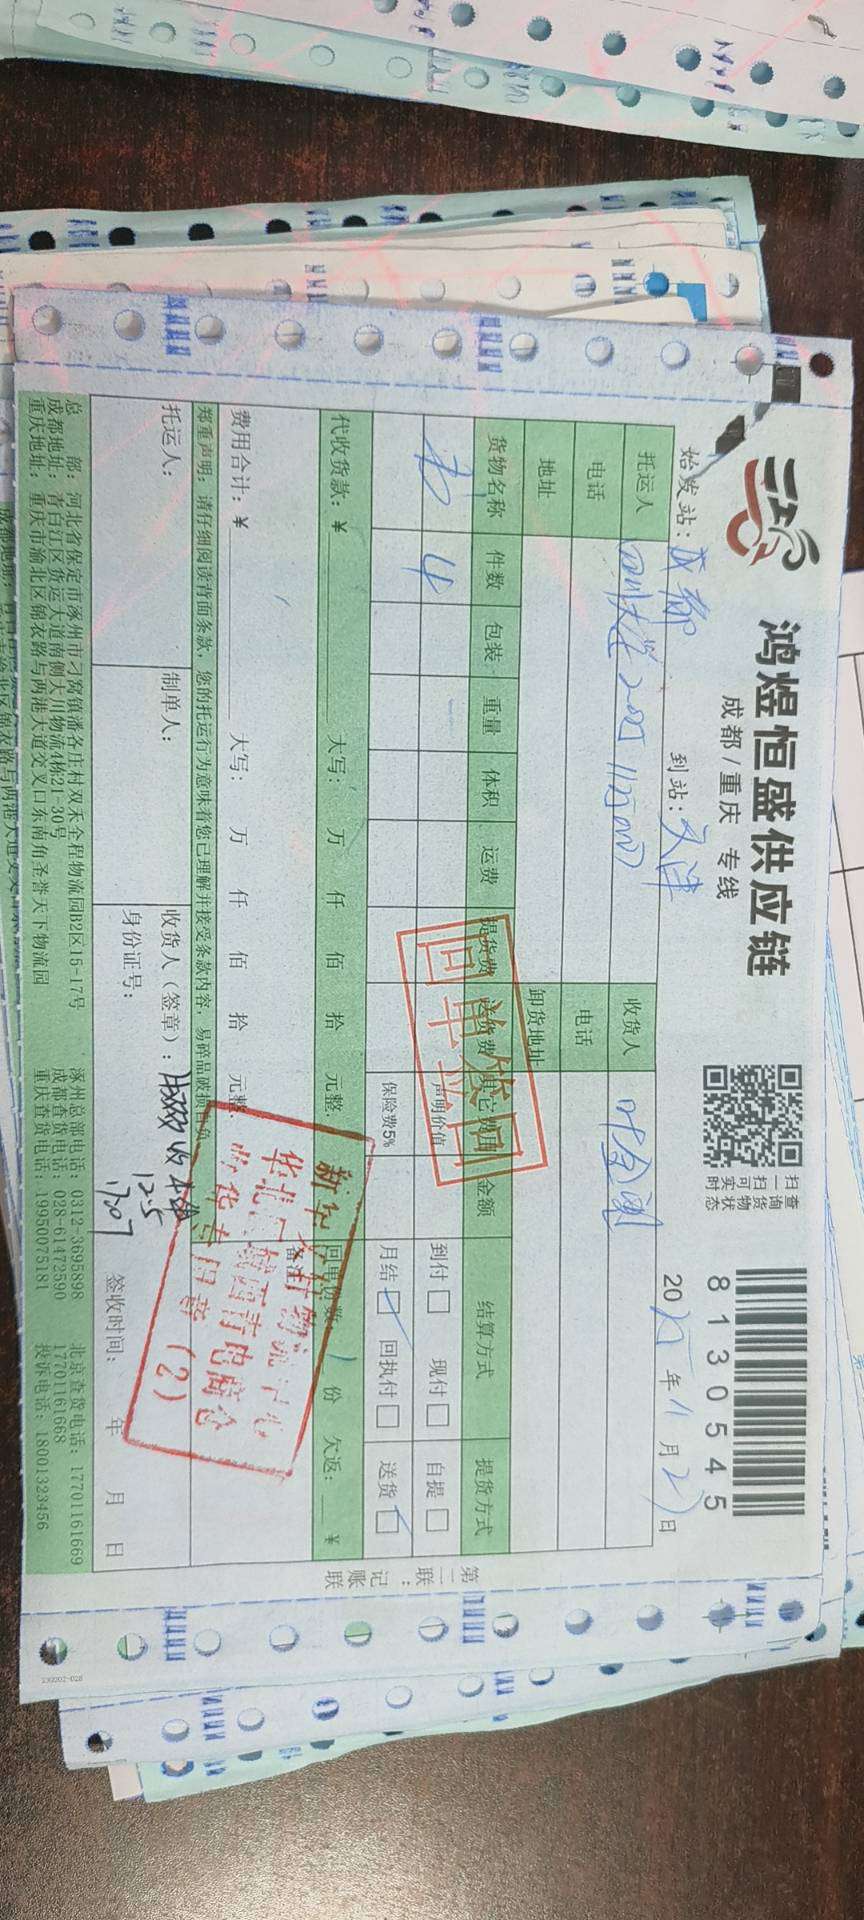 鸿煜恒盛供应链
成都/重庆 专线
扫一扫 查询货物实时可状态
81305455
始发站：成都
到站：天津
2025年11月27日
托运人
收货人
电话
电话
地址
卸货地址
货物名称 件数 包装 重量 体积 运费 提货费 送货费 其它费用 金额 结算方式 提货方式
书 4
声明价值
到付 现付 自提
保险费5%
月结 回执付 送货
代收货款：￥ 大写： 万 仟 佰 拾 元整
回单份数 1 份 欠返： ￥
费用合计：￥ 大写： 万 仟 佰 拾 元整
备注
郑重声明：请仔细阅读背面条款，您的托运行为意味着您已理解并接受条款内容，易碎品破损自负
托运人：
制单人：
收货人（签章）：
身份证号：
12.5
签收时间： 年 月 日
总 部：河北省保定市涿州市刁窝镇潘各庄村双禾全程物流园B2区15-17号
成都地址：青白江区货运大道南侧大川物流4栋21-30号
重庆地址：重庆市渝北区锦衣路与两港大道交叉口东南角圣誉天下物流园
涿州总部电话：0312-3695898
成都查货电话：028-61472590
重庆查货电话：19950075181
北京查货电话：17701161669
17701161668
投诉电话：18801323456
第二联：记账联
回单发回
新华文轩物流中心
华北区域西青电商仓
收货专用章（2）